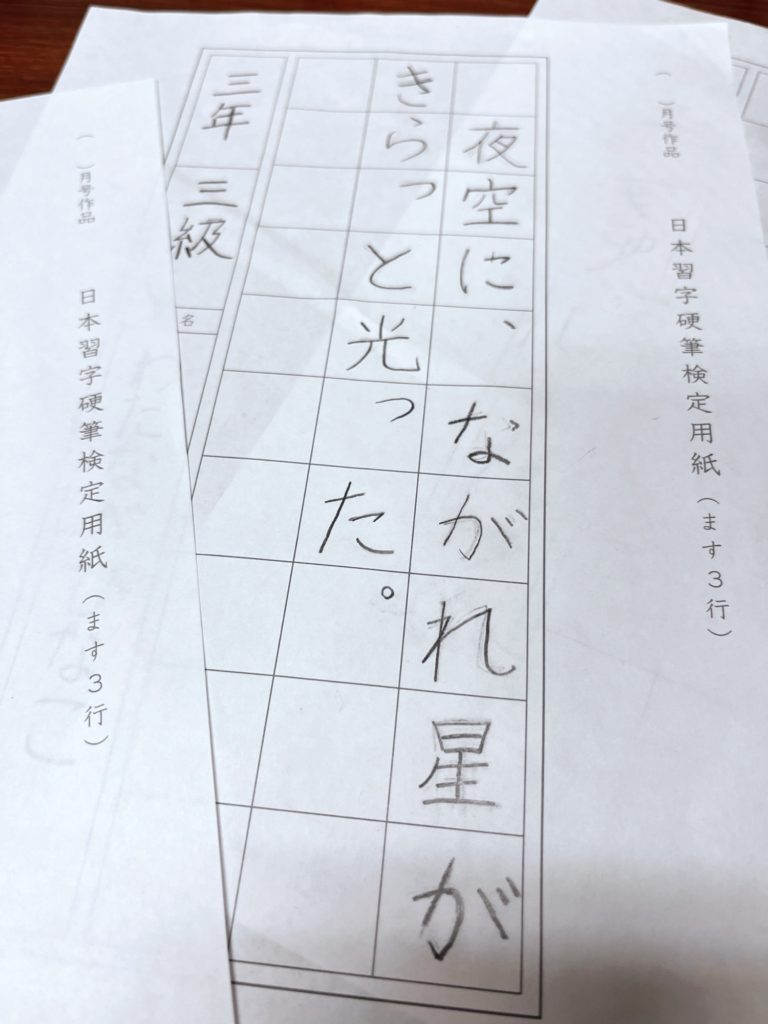 ( )月号作品 日本習字硬筆検定用紙(ます3行)
夜空に、ながれ星が
きらっと光った。
三年 三級
名
( )月号作品 日本習字硬筆検定用紙(ます3行)